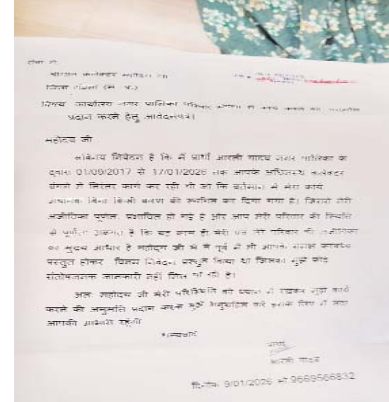 सेवा में,
श्रीमान कलेक्टर महोदय जी
जिला
विषय कार्यालय नगर पालिका परिषद में कार्य करने की अनुमति
प्रदान करने हेतु आवेदनपत्र।
महोदय जी
सविनय निवेदन है कि मैं प्रार्थी आरती यादव नगर पालिका के
द्वारा 01/09/2017 से 17/01/2026 तक आपके अधिनस्थ कलेक्टर
बंगले में निरंतर कार्य कर रही थी जो कि वर्तमान में मेरा कार्य
बिना किसी कारण की स्थगित कर दिया गया है। जिससे मेरी
अजीविका पूर्णतः प्रभावित हो गई है और आप मेरी परिवार की स्थिति
से पूर्णतः अवगत है कि यह काम ही मेरी एवं मेरे परिवार की अजीविका
का मुख्य आधार है महोदय जी मैं पूर्व में भी आपके समक्ष
प्रस्तुत होकर विनम्र निवेदन प्रस्तुत किया था जिसका मुझे कोई
संतोषजनक जानकारी नहीं मिल पा रही है।
अतः महोदय जी मेरी परिस्थिति को ध्यान में रखकर मुझे कार्य
करने की अनुमति प्रदान करके मुझे अनुग्रहित करे इसके लिए मैं सदा
आपकी आभारी रहूंगी
धन्यवाद
आरती यादव
दिनांक 9/01/2026 मो 9669566832